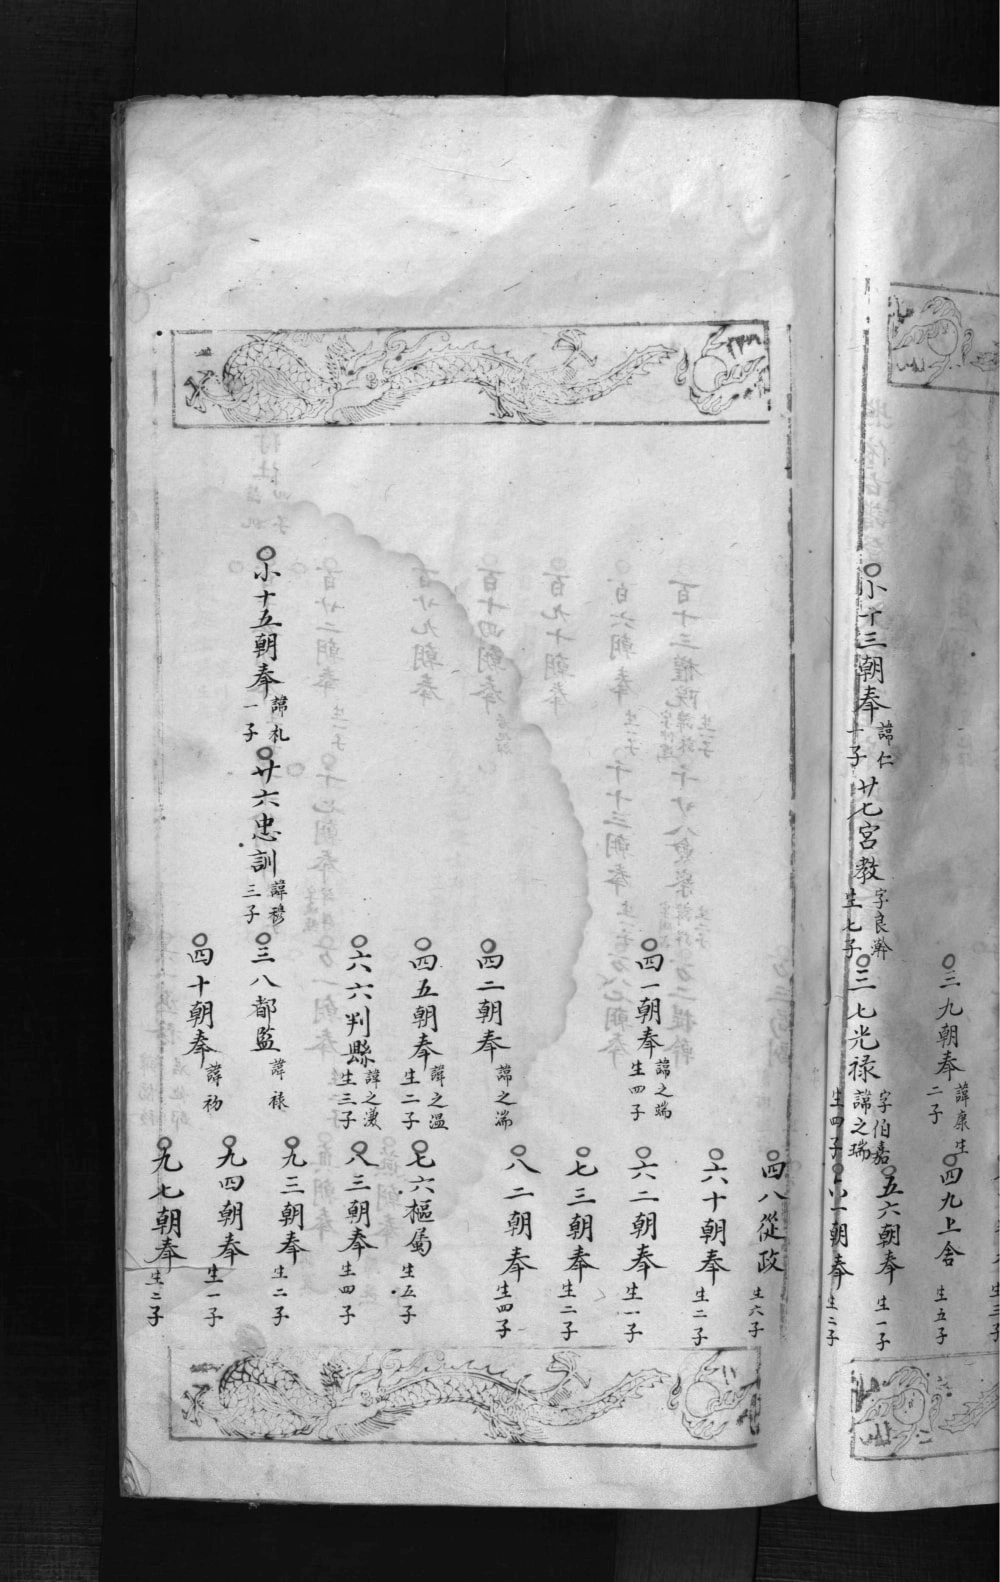 小十三朝奉 諱仁 十子
廿七宮教 字良瀚 生七子
三七光禄 字伯嘉 諱之瑞 生四子
三九朝奉 諱康 生二子
四九上舍 生五子
五六朝奉 生一子
一朝奉 生二子
四八從政 生六子
四一朝奉 諱之端 生四子
六十朝奉 生二子
六二朝奉 生一子
七三朝奉 生二子
四二朝奉 諱之湍
八二朝奉 生四子
四五朝奉 諱之溫 生二子
七六樞屬 生五子
六六判縣 諱之 生三子
八三朝奉 生四子
小十五朝奉 諱札 一子
廿六忠訓 諱穆 三子
三八都監 諱禄
九三朝奉 生二子
九四朝奉 生一子
四十朝奉 諱礽
九七朝奉 生二子